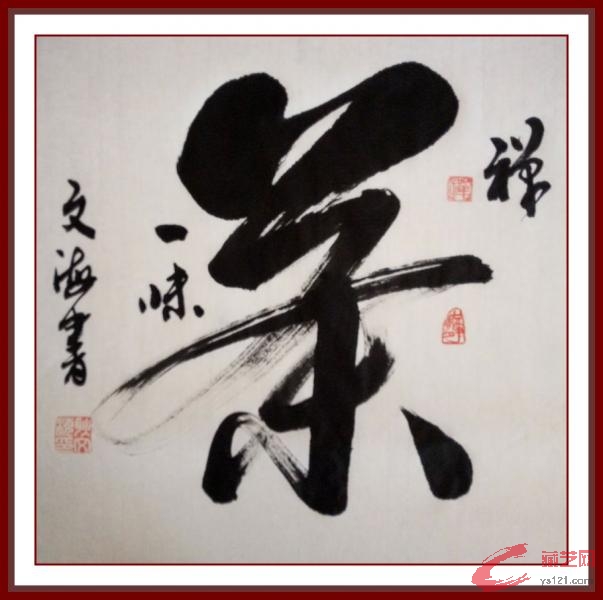 禅
茶
一味
文海書
藏艺网
ys121.com